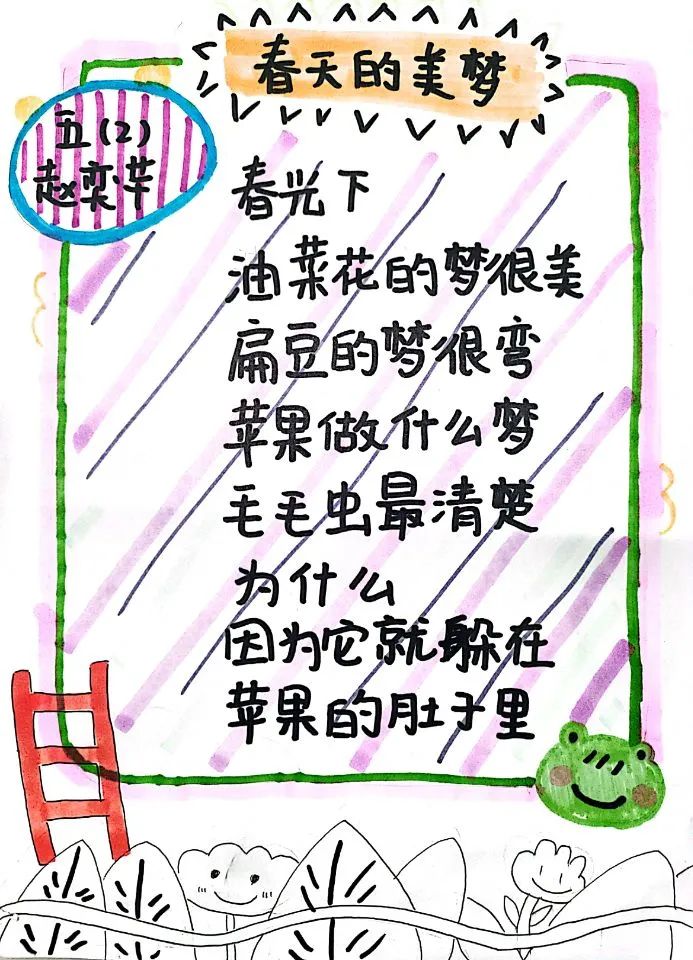 春天的美梦
五(2)
赵奕芊
春光下
油菜花的梦很美
扁豆的梦很弯
苹果做什么梦
毛毛虫最清楚
为什么
因为它就躲在
苹果的肚子里